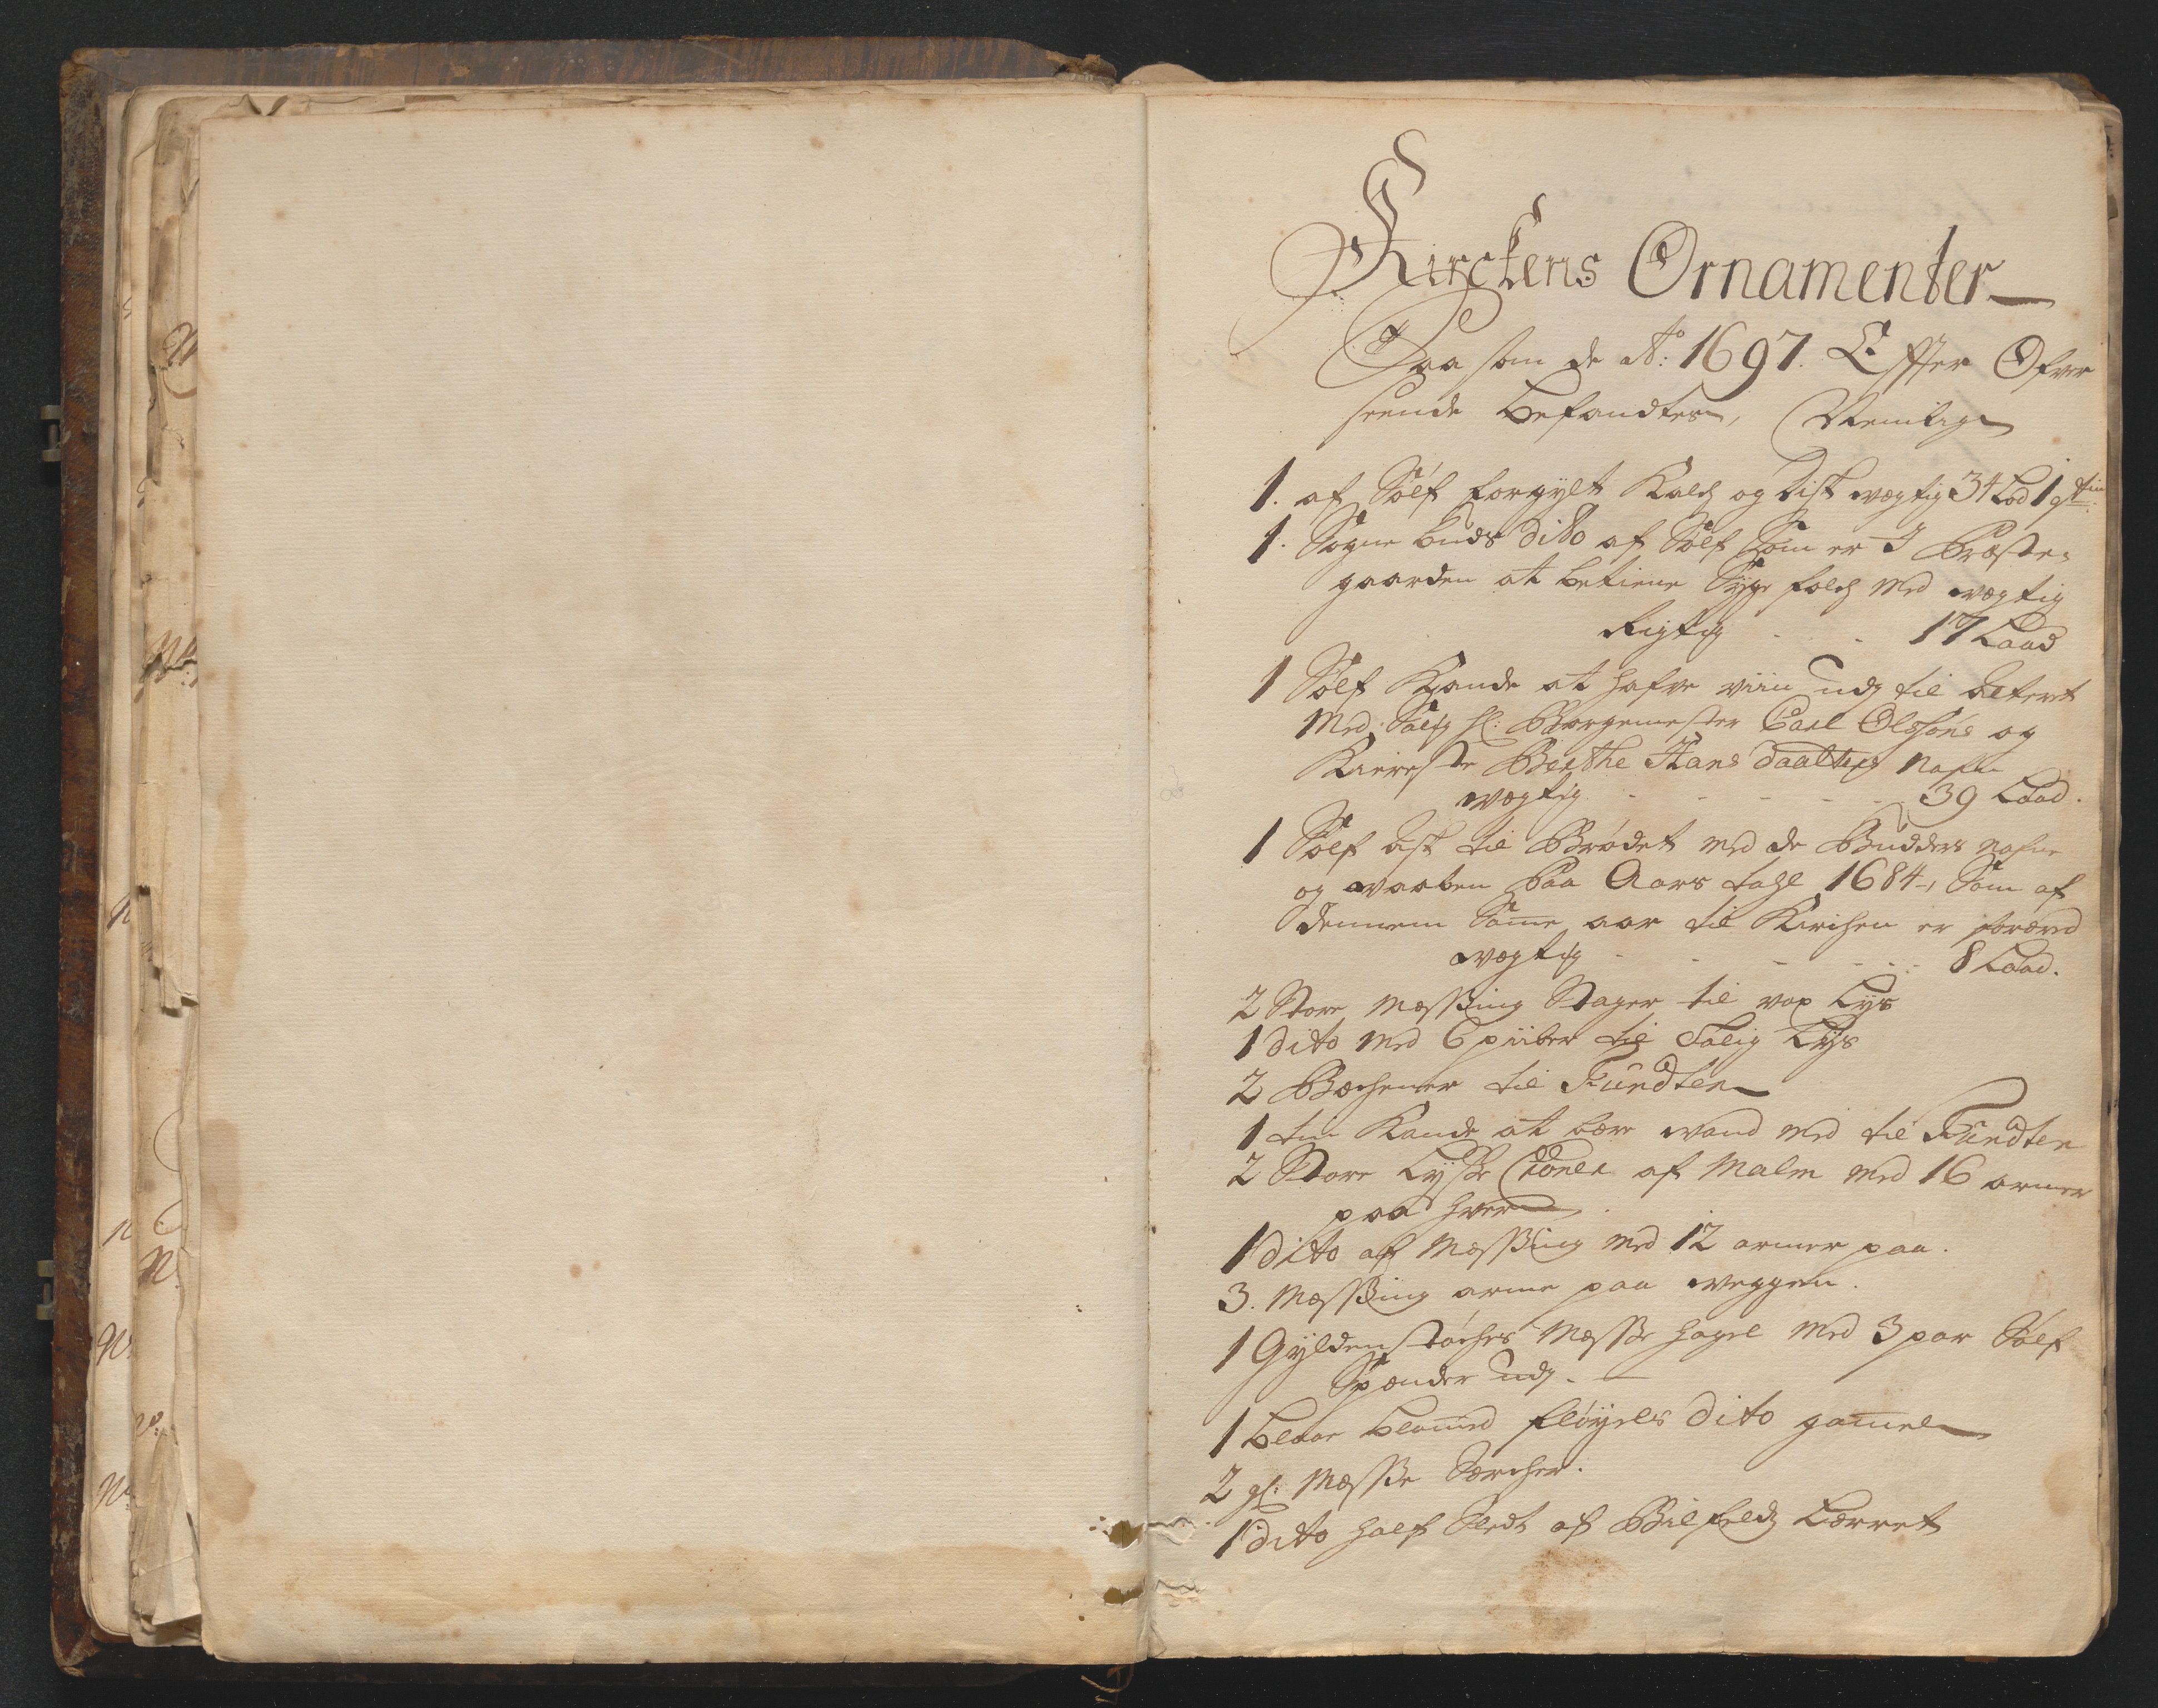 Kirckens Ornamenter
Saa som de Ao: 1697. Effter Ofver
seende befandtes, Nemlig
1. af Sølf forgylt Kalch og Disk wegtig 34 Lod 1 qtin
1. Sogne buds dito af Sølf som er I Præste-
gaarden at betiene Syge folch med wegtig
Rigtig - - 17 Laad
1 Sølf Kande at hafve viin udj til alteret
Med Salig Hl: Borgemester Carl Olssøns og
Kiereste Berthe Hans daatters Nafn
wegtig - - - - - 39 Laad.
1 Sølf disk til Brødet med de Budders nafne
og waaben paa Aars tahl 1684, Som af
dennem Samme aar til Kirchen er foræred
wegtig - - - - - 8 Laad.
2 Store Messing Stager til vox Lys
1 dito med 6 piiber til Talig Lys
2 Bechener til Fundten
1 tin Kande at bære wand med til Fundten
2 Store Lysse Croner af Malm med 16 armer
paa hver
1 dito af Messing med 12 armer paa.
3. Messing arme paa weggen.
1 Gylden støches Messe hagel med 3 par Sølf
Spender udj.
1 blaae blommed fløyels dito gammel
2 gl: Messe Sercher.
1 dito half Slet af Bilfeldz Lerret